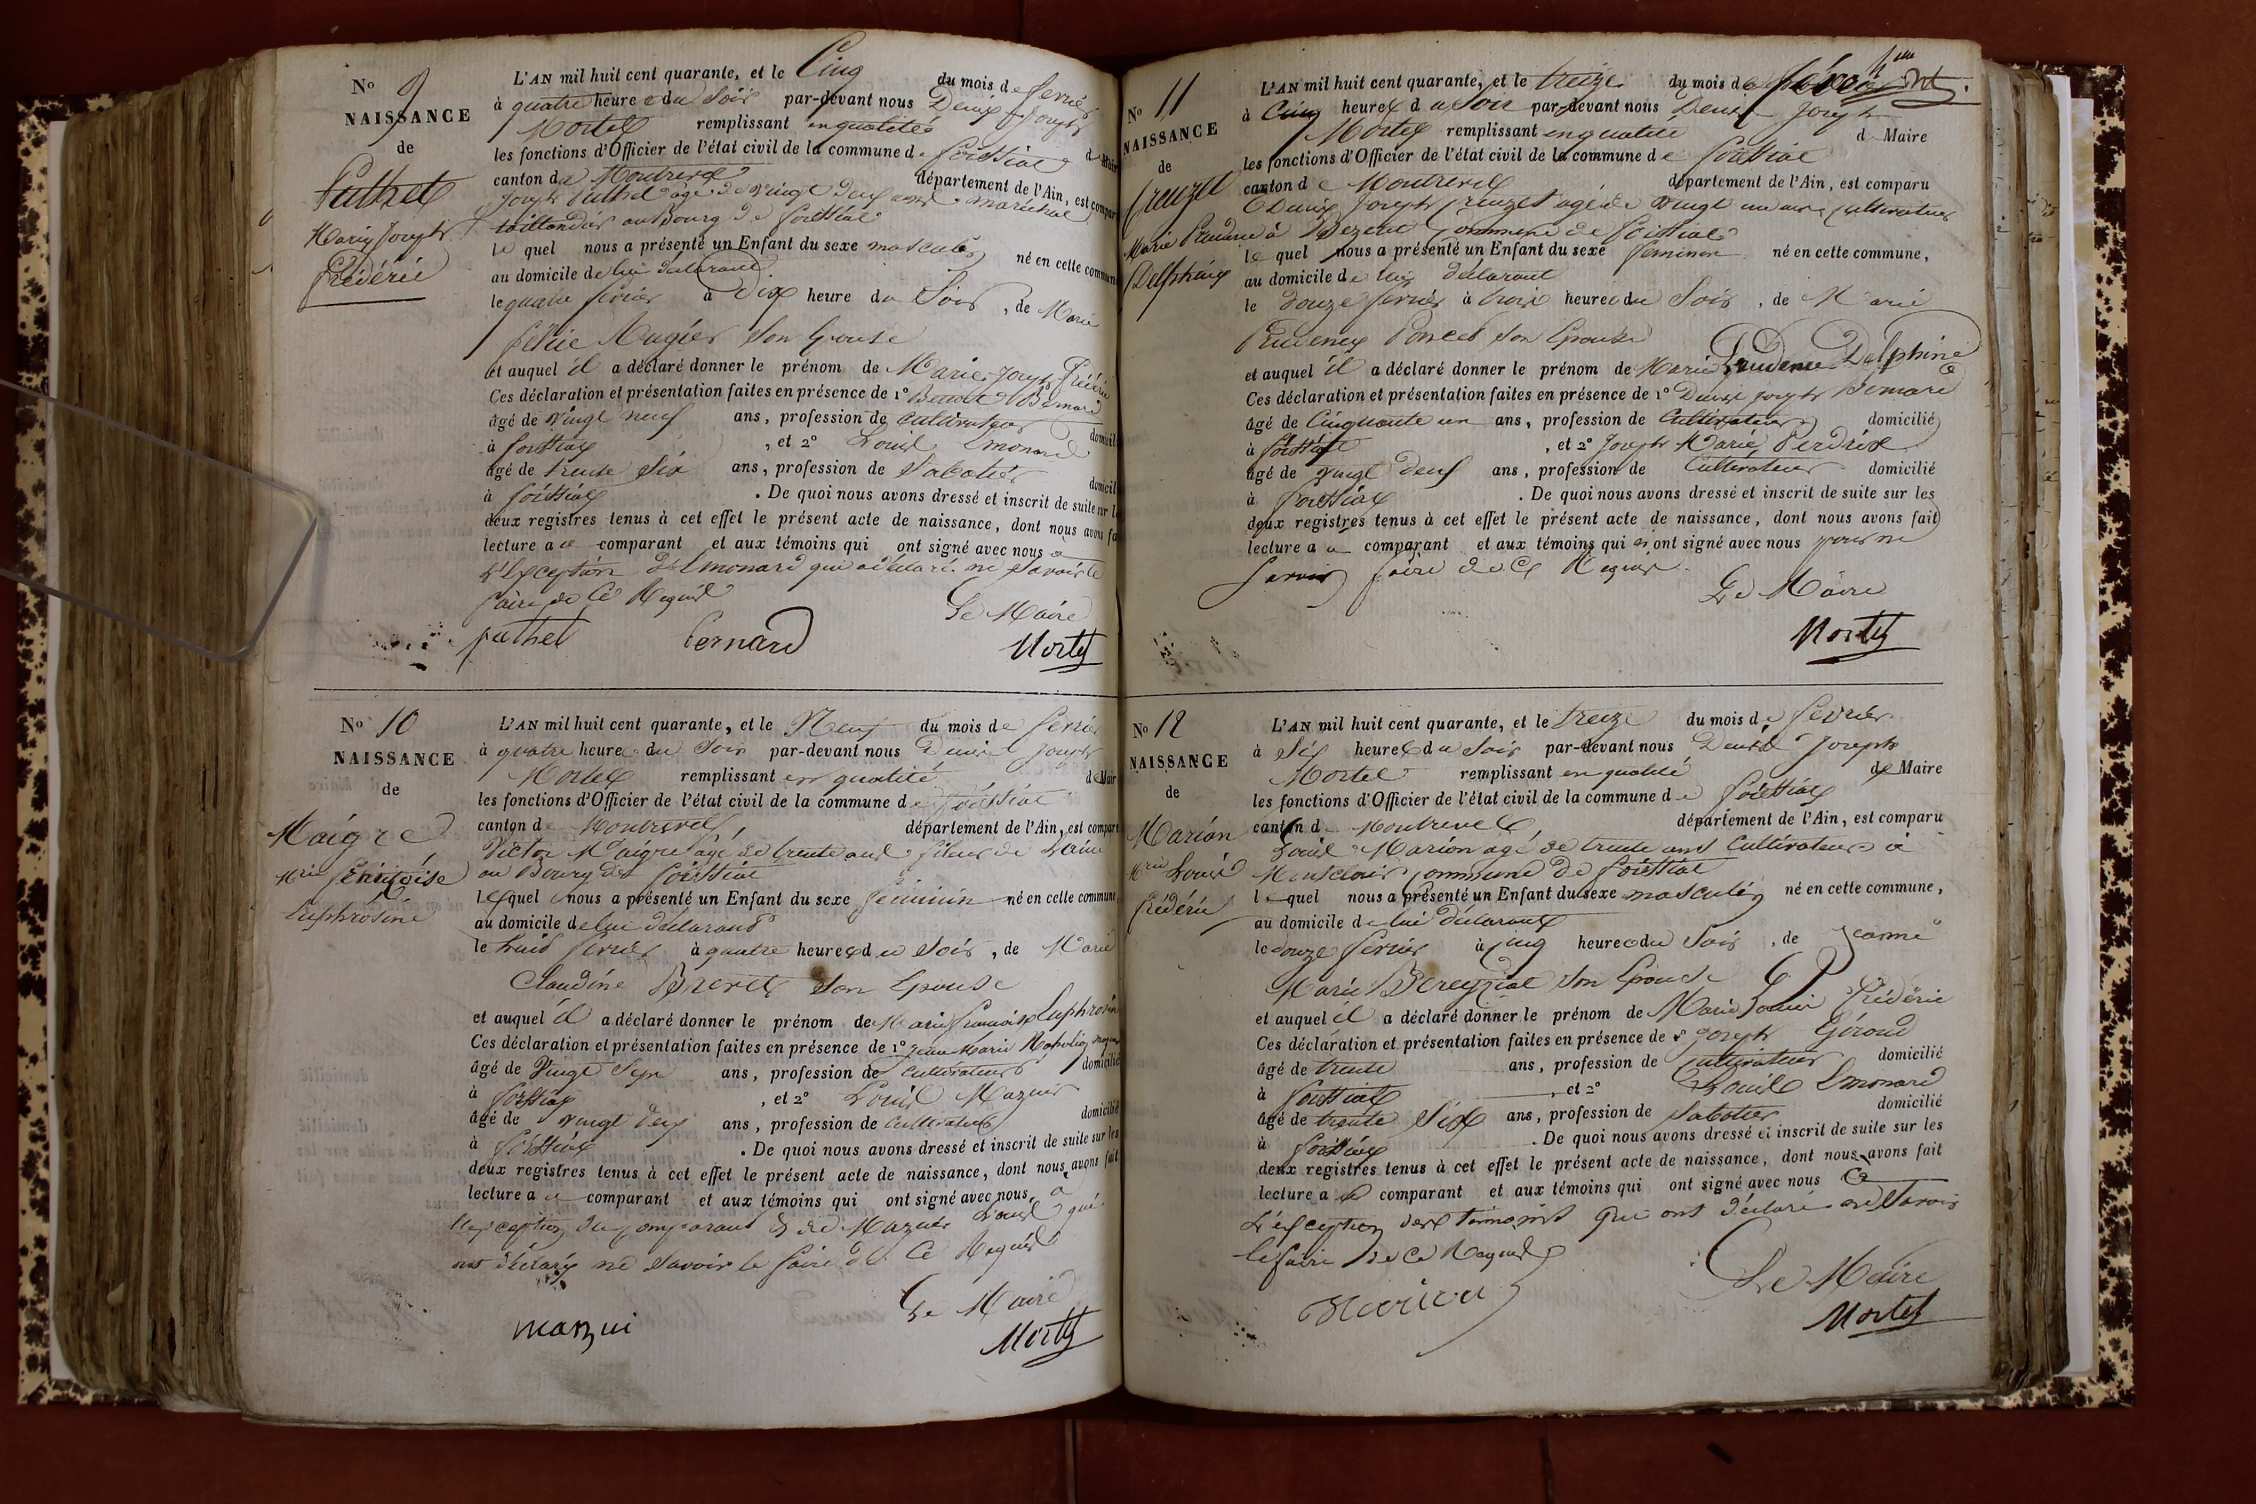 No 9
NAISSANCE
de
Puthet
Marie Joseph
Frédéric
L'AN mil huit cent quarante, et le Cinq du mois de fevrié
à quatre heure du Soir par-devant nous Denis Joseph
Mortel remplissant en qualité de Maire
les fonctions d'Officier de l'état civil de la commune de foissiat
canton de Montrevel département de l'Ain, est comparu
Joseph Puthet agé de vingt neuf ans maréchal
taillandier au Bourg de foissiat
le quel nous a présenté un Enfant du sexe masculin né en cette commune
au domicile de lui déclarant
le quatre fevrier à Dix heure du Soir, de Marie
Félicie Mugier son épouse
et auquel il a déclaré donner le prénom de Marie Joseph Frédéric
Ces déclaration et présentation faites en présence de 1o Benoit Bernard
âgé de vingt neuf ans, profession de cultivateur domicilié
à foissiat, et 2o Louis Emonard
âgé de trente Six ans, profession de Sabotier domicilié
à foissiat. De quoi nous avons dressé et inscrit de suite sur les
deux registres tenus à cet effet le présent acte de naissance, dont nous avons fait
lecture au comparant et aux témoins qui ont signé avec nous a
L'exception d'Emonard qui a déclaré ne savoir le
faire de Ce Requis
Le Maire
puthet Bernard Mortel
No 10
NAISSANCE
de
Maigre
Mrie françoise
Euphrosine
L'AN mil huit cent quarante, et le Neuf du mois de fevrier
à quatre heure du Soir par-devant nous Denis Joseph
Mortel remplissant en qualité de Maire
les fonctions d'Officier de l'état civil de la commune de foissiat
canton de Montrevel département de l'Ain, est comparu
Victor Maigre agé de trente ans fileur de Laine
au Bourg de foissiat
lequel nous a présenté un Enfant du sexe féminin né en cette commune
au domicile de lui déclarant
le huit fevrier à quatre heures du Soir, de Marie
Claudine Brevet son épouse
et auquel il a déclaré donner le prénom de Marie françoise Euphrosine
Ces déclaration et présentation faites en présence de 1o Jean Marie
âgé de Vingt Sept ans, profession de cultivateur domicilié
à foissiat, et 2o Louis Mazuir
âgé de vingt deux ans, profession de cultivateur domicilié
à foissiat. De quoi nous avons dressé et inscrit de suite sur les
deux registres tenus à cet effet le présent acte de naissance, dont nous avons fait
lecture au comparant et aux témoins qui ont signé avec nous a
L'exception du comparant et de Mazuir Louis qui
ont déclaré ne savoir le faire de Ce Requis
Le Maire
mazui Mortel
No 11
NAISSANCE
de
Creuzet
Marie Prudence
Delphine
L'AN mil huit cent quarante, et le treize du mois de février
à Cinq heures du Soir par-devant nous Denis Joseph
Mortel remplissant en qualité de Maire
les fonctions d'Officier de l'état civil de la commune de foissiat
canton de Montrevel département de l'Ain, est comparu
Denis Joseph Creuzet agé de vingt un ans cultivateur
à Bezene Commune de foissiat
le quel nous a présenté un Enfant du sexe feminin né en cette commune,
au domicile de lui déclarant
le Douze fevrier à trois heure du Soir, de Marie
Prudence Poncet son Epouse
et auquel il a déclaré donner le prénom de Marie Prudence Delphine
Ces déclaration et présentation faites en présence de 1o Denis Joseph
âgé de Cinquante un ans, profession de Cultivateur domicilié
à foissiat, et 2o Joseph Marie Perdrix
âgé de vingt Deuf ans, profession de Cultivateur domicilié
à foissiat. De quoi nous avons dressé et inscrit de suite sur les
deux registres tenus à cet effet le présent acte de naissance, dont nous avons fait
lecture au comparant et aux témoins qui n'ont signé avec nous pour ne
savoir faire de Ce Requis
Le Maire
Mortel
No 12
NAISSANCE
de
Marion
Mrie Louis
Frédéric
L'AN mil huit cent quarante, et le treize du mois de fevrier
à Six heures du Soir par-devant nous Denis Joseph
Mortel remplissant en qualité de Maire
les fonctions d'Officier de l'état civil de la commune de foissiat
canton de Montrevel département de l'Ain, est comparu
Louis Marion agé de trente ans Cultivateur à
Commune de foissiat
le quel nous a présenté un Enfant du sexe masculin né en cette commune,
au domicile de lui déclarant
le douze fevrier à Cinq heure du Soir, de Jeanne
Marie Bereyziat son épouse
et auquel il a déclaré donner le prénom de Marie Louis Frédéric
Ces déclaration et présentation faites en présence de 1o Joseph Giroud
âgé de trente ans, profession de cultivateur domicilié
à foissiat, et 2o Louis Emonard
âgé de trente Six ans, profession de Sabotier domicilié
à foissiat. De quoi nous avons dressé et inscrit de suite sur les
deux registres tenus à cet effet le présent acte de naissance, dont nous avons fait
lecture au comparant et aux témoins qui ont signé avec nous a
L'exception des témoins qui ont déclaré ne Savoir
le faire de Ce Requis
Le Maire
Marion Mortel